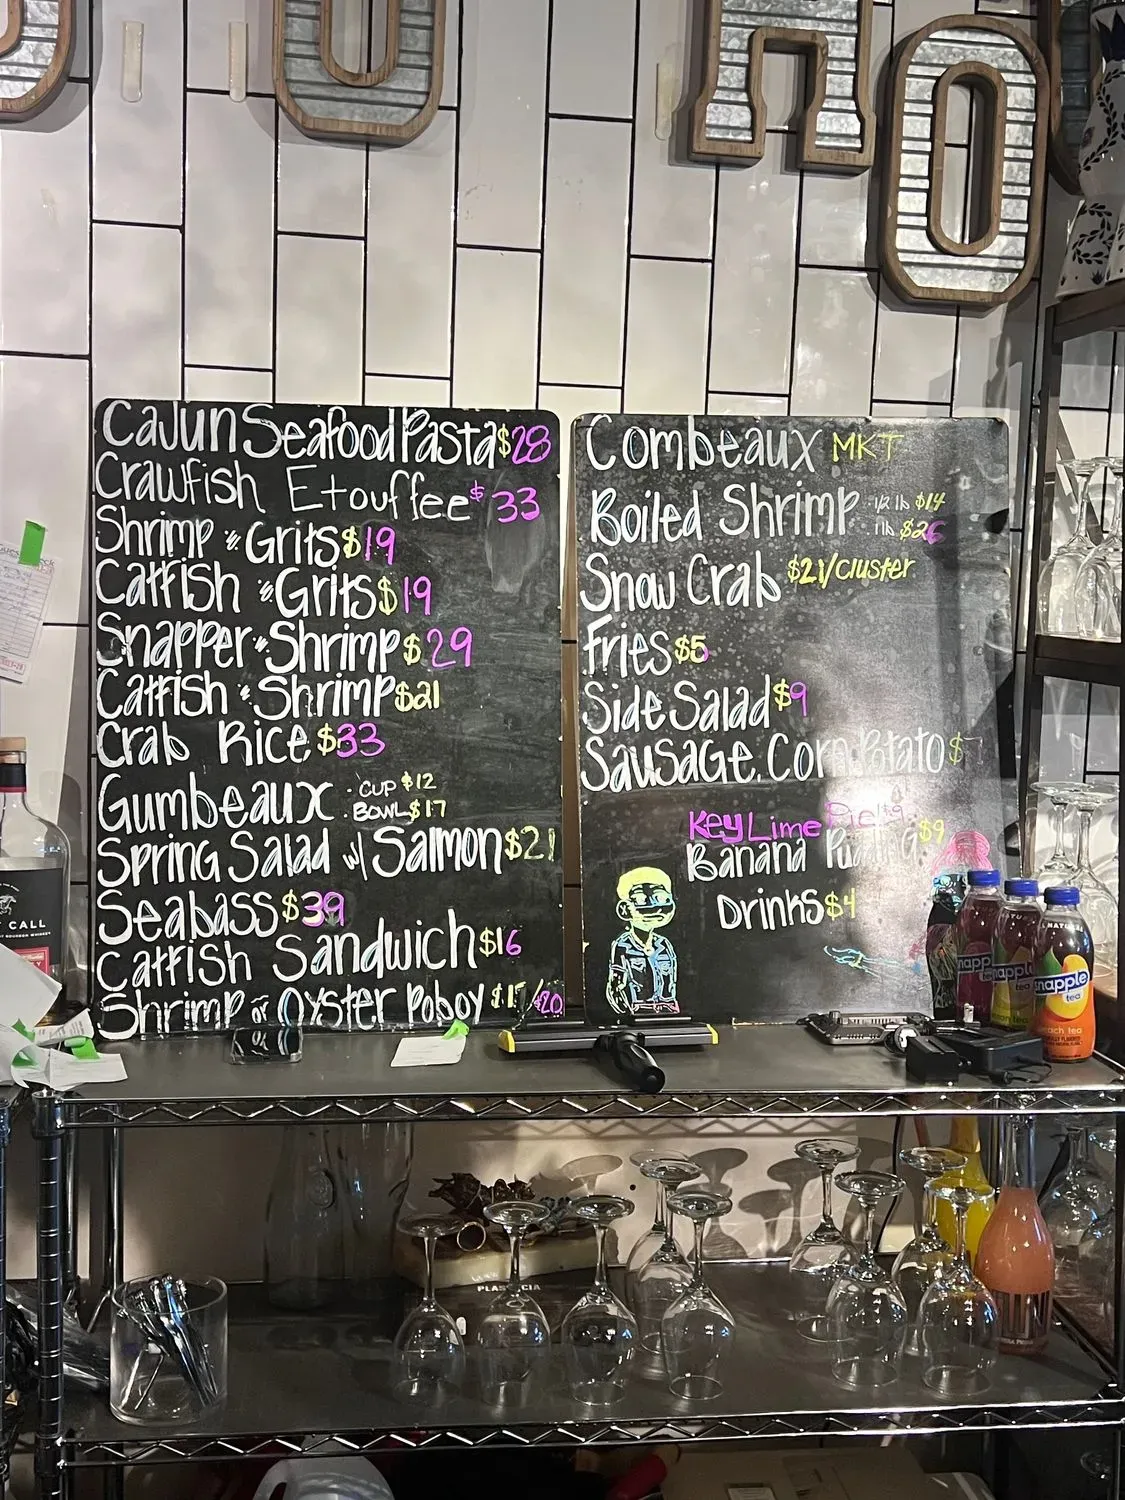 Cajun Seafood Pasta $28
Crawfish Etouffee $33
Shrimp & Grits $19
Catfish & Grits $19
Snapper & Shrimp $29
Catfish & Shrimp $21
Crab Rice $33
Gumbeaux · CUP $12
· BOWL $17
Spring Salad w/ Salmon $21
Seabass $39
Catfish Sandwich $16
Shrimp or Oyster Poboy /$20
Combeaux MKT
Boiled Shrimp · 1/2 lb $14
· 1lb $26
Snow Crab $21/cluster
Fries $5
Side Salad $9
Sausage, Corn, Potato $7
Key Lime Pie $9
Banana Pudding $9
Drinks $4
CALL
Snapple
tea
Snapple
tea
Snapple
tea